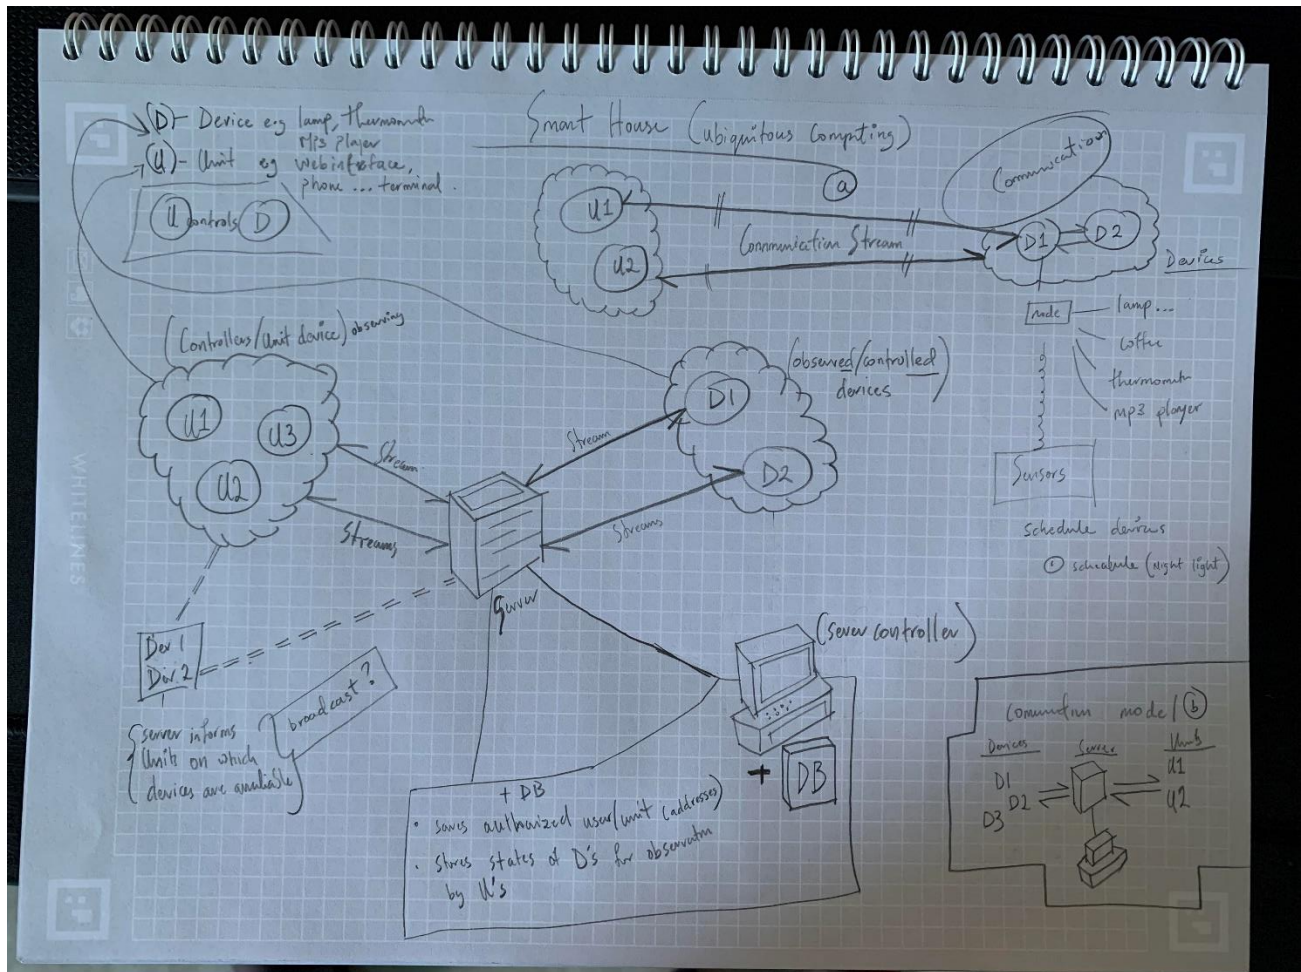 (D) - Device e.g lamp, thermometr
MP3 player
(U) - Unit eg web interface,
phone ... terminal.
U controls D
Smart House (ubiquitous computing)
a
Communication
U1
U2
Communication Stream
D1
D2
Devices
node
lamp...
coffee
thermometr
mp3 player
Sensors
schedule devices
schedule (Night light)
(Controllers/Unit device) observing
U1
U3
U2
Stream
Streams
Stream
Streams
(observed/controlled
devices)
D1
D2
Server
Dev 1
Dev. 2
{server informs
Units on which
devices are available}
broadcast?
(server controller)
+ DB
+ DB
• saves authorized user/unit (addresses)
• stores states of D's for observatn
by U's
mode/ b
Devices
Server
Units
D1
D2
D3
U1
U2
WHITELINES